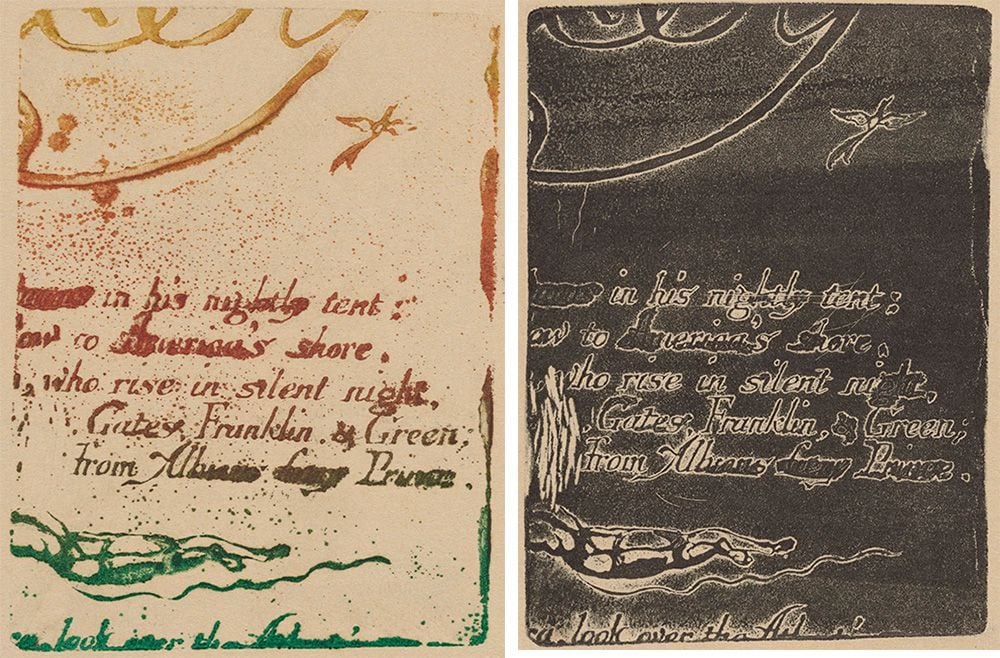 in his nightly tent;
ow to America's shore.
, who rise in silent night,
Gates, Franklin & Green;
from Albions fiery Prince.
look over the
in his nightly tent;
ow to America's shore,
who rise in silent night,
Gates, Franklin, & Green;
from Albions fiery Prince.
look over the